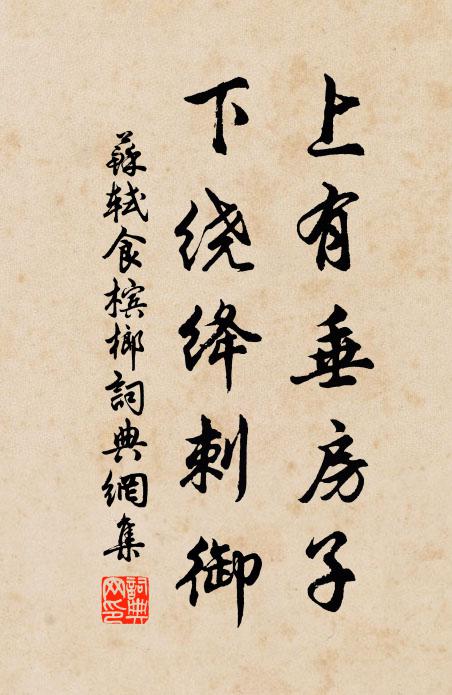 上有垂房子
下绕绛刺御
蘇軾食槟榔詞典網集
詞典網印